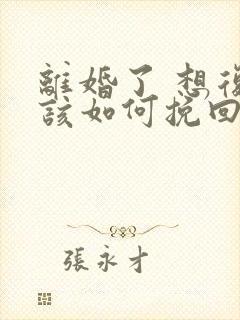 離婚了 想復
該如何挽回
張永才